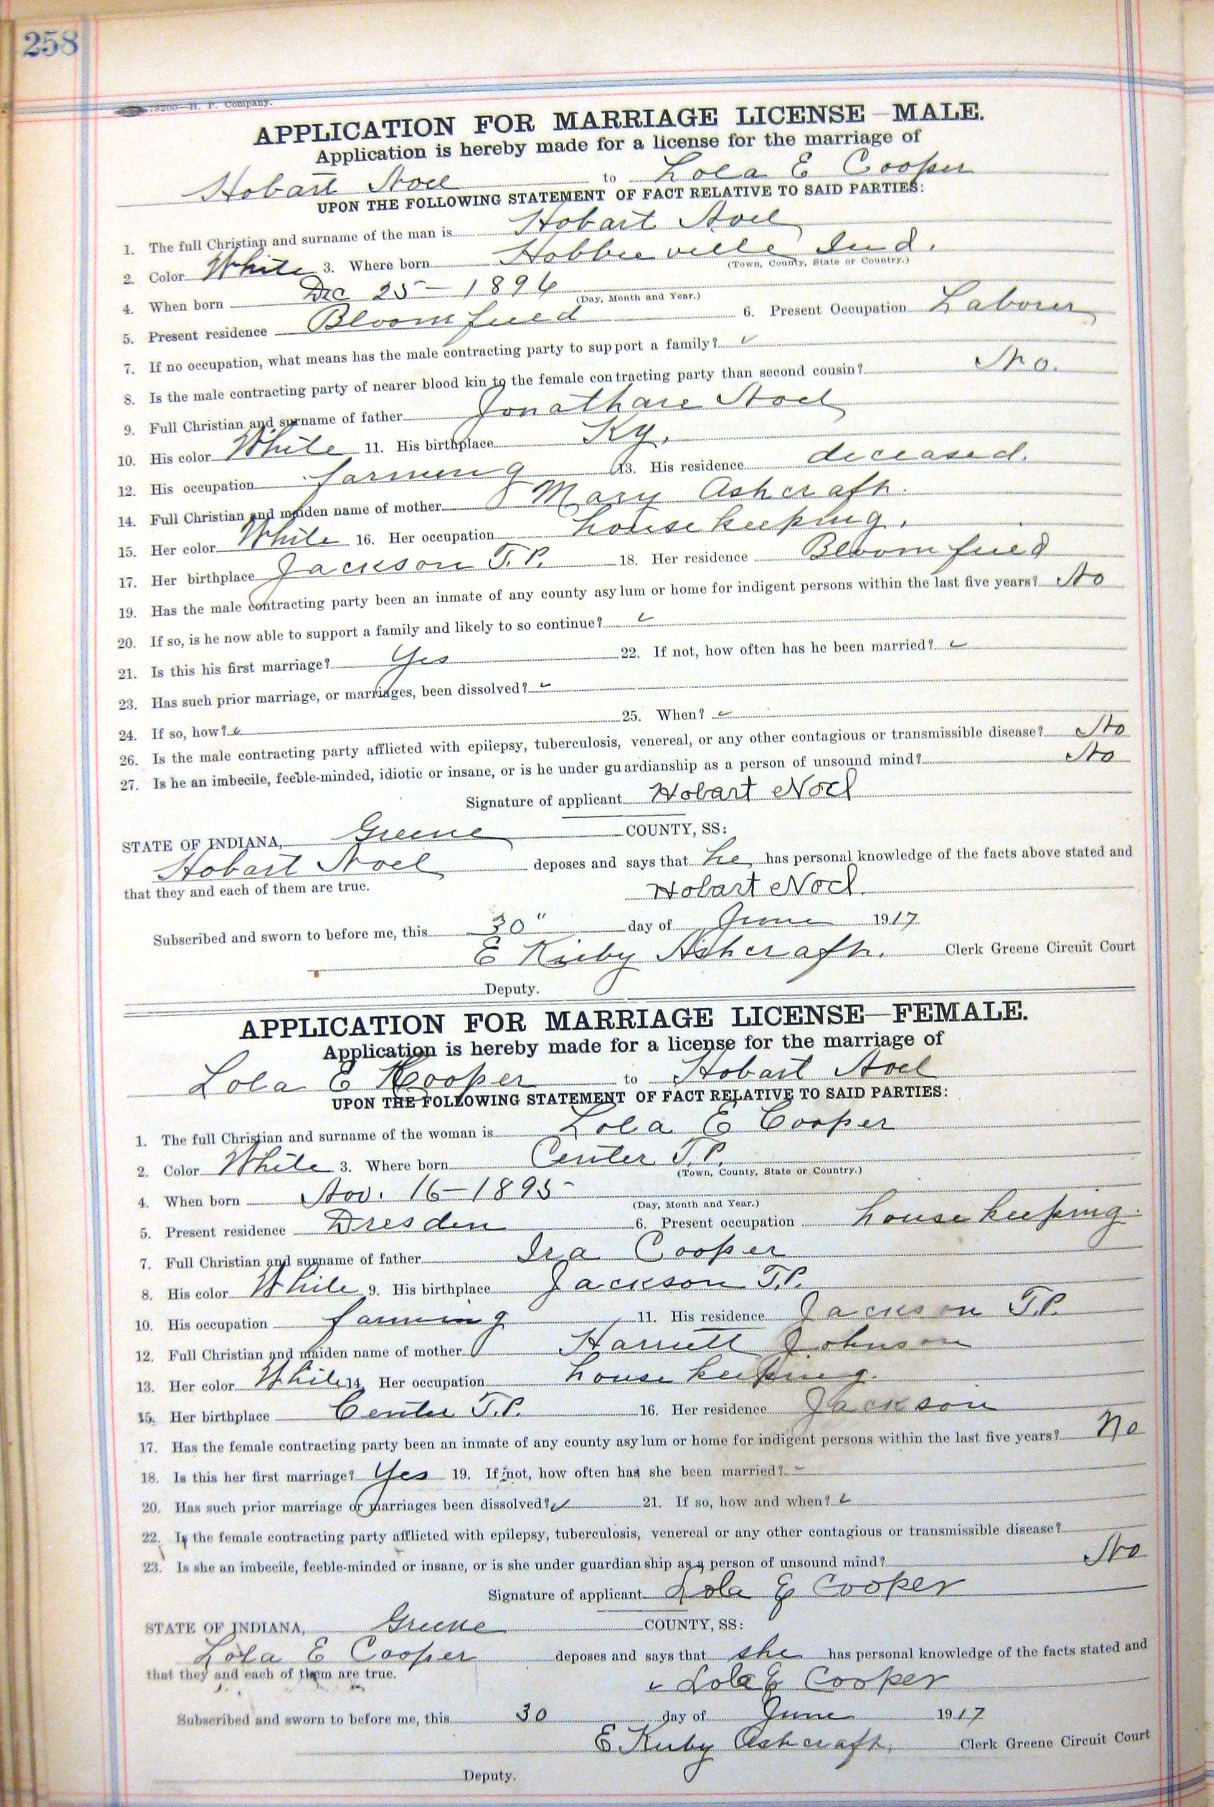 258
H. P. Company.
APPLICATION FOR MARRIAGE LICENSE—MALE.
Application is hereby made for a license for the marriage of
Hobart Noel to Lola E Cooper
UPON THE FOLLOWING STATEMENT OF FACT RELATIVE TO SAID PARTIES:
1. The full Christian and surname of the man is Hobart Noel
2. Color White 3. Where born Hobbieville Ind.
(Town, County, State or Country.)
4. When born Dec 25— 1896
(Day, Month and Year.)
5. Present residence Bloomfield 6. Present Occupation Laborer
7. If no occupation, what means has the male contracting party to support a family? ✓
8. Is the male contracting party of nearer blood kin to the female contracting party than second cousin? No.
9. Full Christian and surname of father Jonathan Noel
10. His color White 11. His birthplace Ky.
12. His occupation farming 13. His residence deceased.
14. Full Christian and maiden name of mother Mary Ashcraft.
15. Her color White 16. Her occupation housekeeping.
17. Her birthplace Jackson T.P. 18. Her residence Bloomfield
19. Has the male contracting party been an inmate of any county asylum or home for indigent persons within the last five years? No
20. If so, is he now able to support a family and likely to so continue? ✓
21. Is this his first marriage? Yes 22. If not, how often has he been married? ✓
23. Has such prior marriage, or marriages, been dissolved? ✓
24. If so, how? ✓ 25. When? ✓
26. Is the male contracting party afflicted with epilepsy, tuberculosis, venereal, or any other contagious or transmissible disease? No
27. Is he an imbecile, feeble-minded, idiotic or insane, or is he under guardianship as a person of unsound mind? No
Signature of applicant Hobart Noel
STATE OF INDIANA, Greene COUNTY, SS:
Hobart Noel deposes and says that he has personal knowledge of the facts above stated and
that they and each of them are true. Hobart Noel.
Subscribed and sworn to before me, this 30" day of June 1917
E Kirby Ashcraft. Clerk Greene Circuit Court
Deputy.
APPLICATION FOR MARRIAGE LICENSE—FEMALE.
Application is hereby made for a license for the marriage of
Lola E Cooper to Hobart Noel
UPON THE FOLLOWING STATEMENT OF FACT RELATIVE TO SAID PARTIES:
1. The full Christian and surname of the woman is Lola E Cooper
2. Color White 3. Where born Center T.P.
(Town, County, State or Country.)
4. When born Nov. 16—1895
(Day, Month and Year.)
5. Present residence Dresden 6. Present occupation housekeeping.
7. Full Christian and surname of father Ira Cooper
8. His color White 9. His birthplace Jackson T.P.
10. His occupation farming 11. His residence Jackson T.P.
12. Full Christian and maiden name of mother Harriett Johnson
13. Her color White 14. Her occupation housekeeping.
15. Her birthplace Center T.P. 16. Her residence Jackson
17. Has the female contracting party been an inmate of any county asylum or home for indigent persons within the last five years? No
18. Is this her first marriage? Yes 19. If not, how often has she been married? ✓
20. Has such prior marriage or marriages been dissolved? ✓ 21. If so, how and when? ✓
22. Is the female contracting party afflicted with epilepsy, tuberculosis, venereal or any other contagious or transmissible disease?
23. Is she an imbecile, feeble-minded or insane, or is she under guardianship as a person of unsound mind? No
Signature of applicant Lola E Cooper
STATE OF INDIANA, Greene COUNTY, SS:
Lola E Cooper deposes and says that she has personal knowledge of the facts stated and
that they and each of them are true. ✓ Lola E Cooper
Subscribed and sworn to before me, this 30 day of June 1917
E Kirby Ashcraft. Clerk Greene Circuit Court
Deputy.